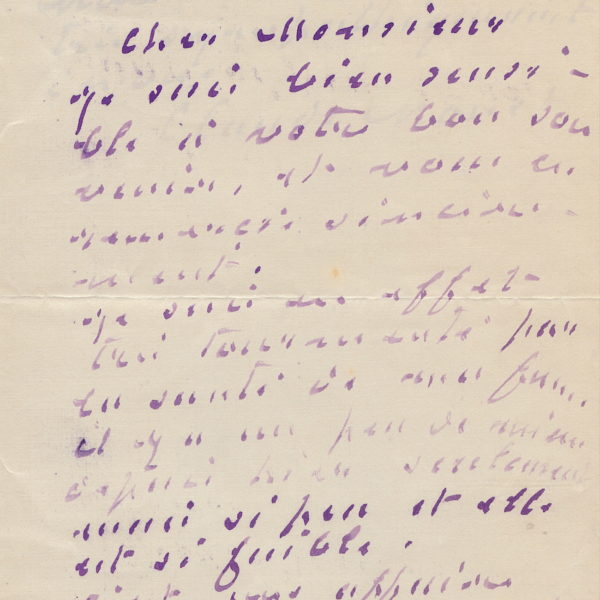 Cher Monsieur
je suis bien sensi-
ble à votre bon sou
venir, et vous en
remercie sincère-
ment.
je suis en effet
très tourmenté par
la santé de ma fem..
il y a un peu de mieux
depuis hier seulement
mais si peu et elle
est si faible.